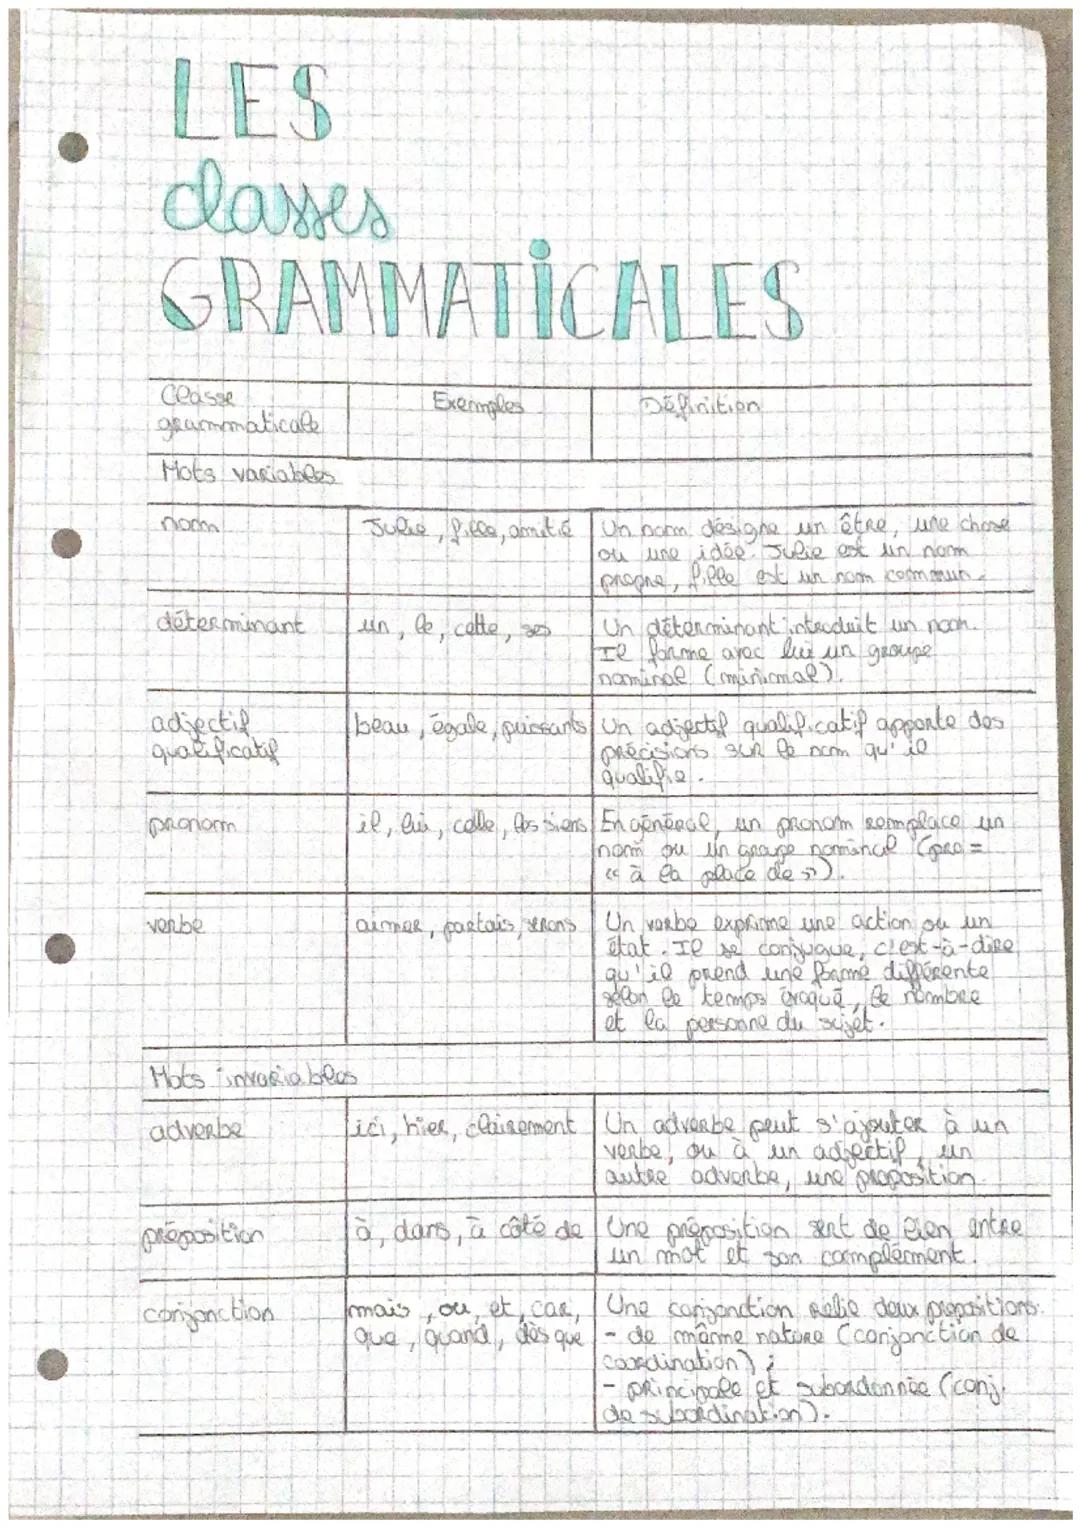 LES
classes
GRAMMATICALES
Classe
grammaticale
Exemples
Définition
Mots variables
nom
Julie, fille, amitié
Un nom désigne un être, une chose
ou une idée. Julie est un nom
propre, fille est un nom commun.
déterminant
un, le, cette, ses
Un déterminant introduit un nom.
Il forme avec lui un groupe
nominal (minimal).
adjectif
qualificatif
beau, égale, puissants
Un adjectif qualificatif apporte des
précisions sur le nom qu'il
qualifie.
pronom
il, lui, celle, les siens
En général, un pronom remplace un
nom ou un groupe nominal (pro =
« à la place de »).
verbe
aimer, partais, serons
Un verbe exprime une action ou un
état. Il se conjugue, c'est-à-dire
qu'il prend une forme différente
selon le temps évoqué, le nombre
et la personne du sujet.
Mots invariables
adverbe
ici, hier, clairement
Un adverbe peut s'ajouter à un
verbe, ou à un adjectif, un
autre adverbe, une proposition.
préposition
à, dans, à côté de
Une préposition sert de lien entre
un mot et son complément.
conjonction
mais, ou, et, car,
que, quand, dès que
Une conjonction relie deux propositions:
- de même nature (conjonction de
coordination) ;
- principale et subordonnée (conj.
de subordination).